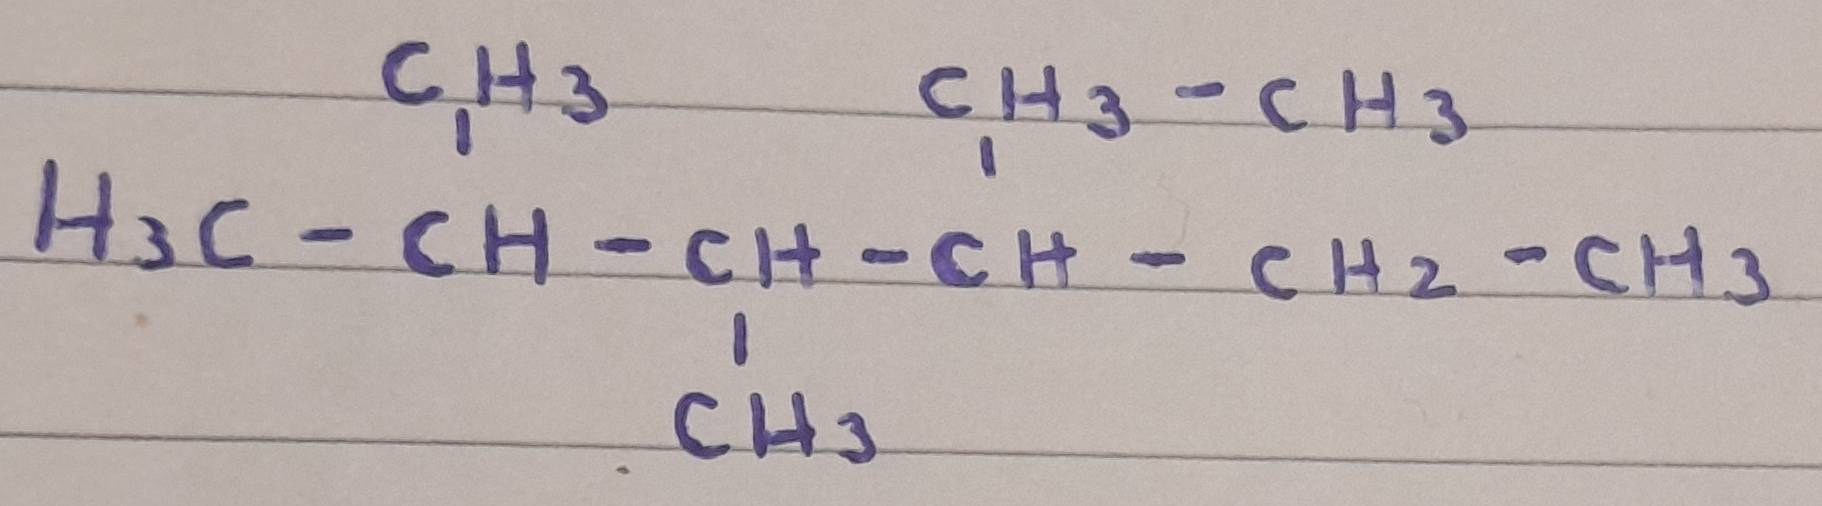 CH3 CH3 - CH3
H3C - CH - CH - CH - CH2 - CH3
CH3